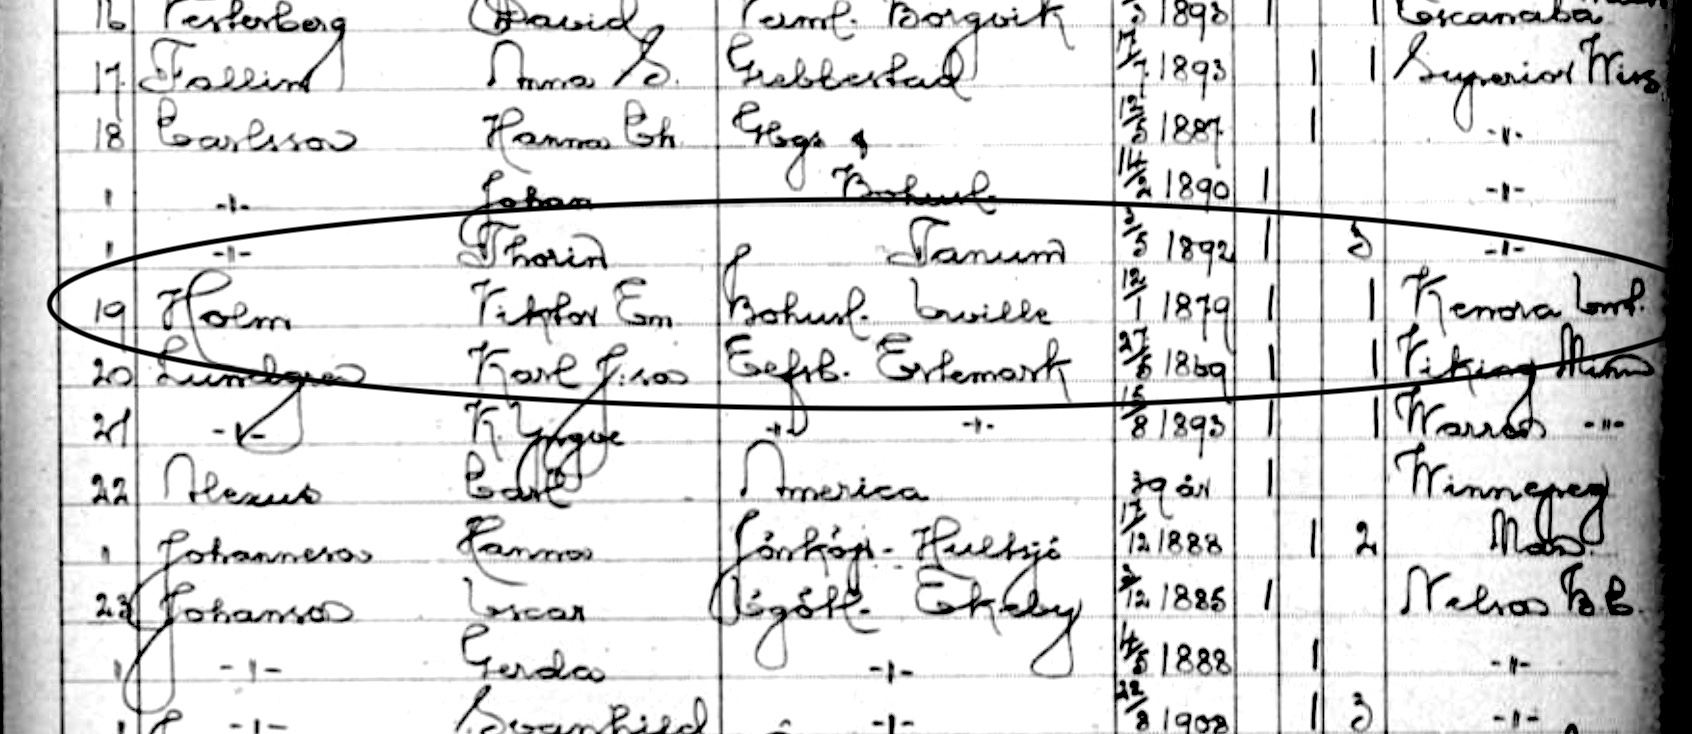 16 Vesterberg David Verml. Borgvik 1893 1 1 Escanaba
17 Fallin Anna S. Grebbestad 17/7 1893 1 1 Superior Wis
18 Carlsson Hanna Ch. Gbgs & 12/5 1887 1 -"-
" -"- Johan Bohusl. 14/2 1890 1 -"-
" -"- Thorin Tanum 3/5 1892 1 3 -"-
19 Holm Viktor Em Bohusl. 12/1 1879 1 1 Kenora
20 Lundgren Karl Elfsb. Ertemark 27/5 1869 1 1 Viking Minn
21 -"- K. Yngve -"- -"- 15/8 1893 1 1 -"-
22 Carl America 39 år 1 Winnepeg
" Hanna Jönköp. Hultsjö 17/12 1888 1 2 Man.
23 Johanson Oscar Ögötl. Ekeby 1885 1 Nelson B.C.
" -"- Gerda -"- 4/5 1888 1 -"-
" -"- Svanhild -"- 22/8 1908 1 3 -"-